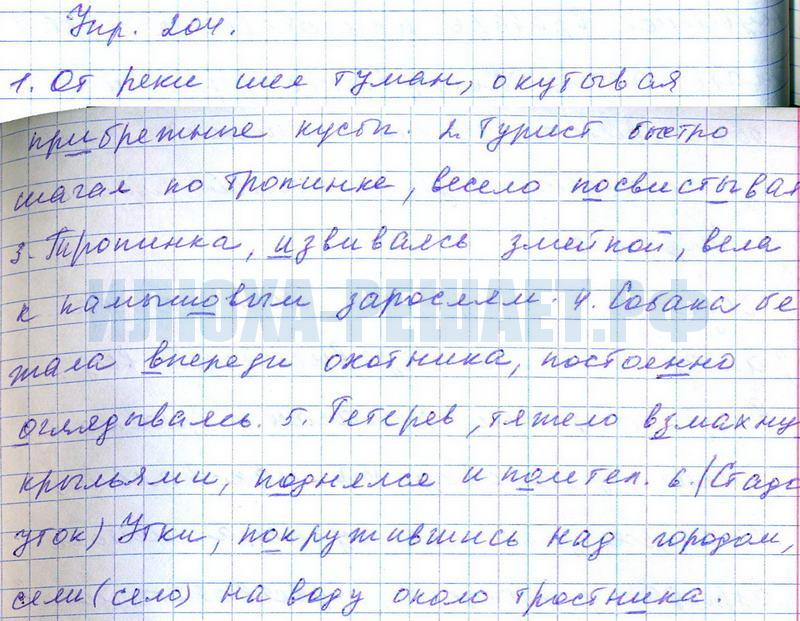 Упр. 204.
1. От реки шел туман, окутывая
прибрежные кусты. 2. Турист быстро
шагал по тропинке, весело посвистывая
3. Тропинка, извиваясь змейкой, вела
к камышовым зарослям. 4. Собака бе
ИЛЮХА-РЕШАЕТ.РФ
жала впереди охотника, постоянно
оглядываясь. 5. Тетерев, тяжело взмахну
крыльями, поднялся и полетел. 6. (Стадо
уток) Утки, покружившись над городом,
сели (село) на воду около тростника.